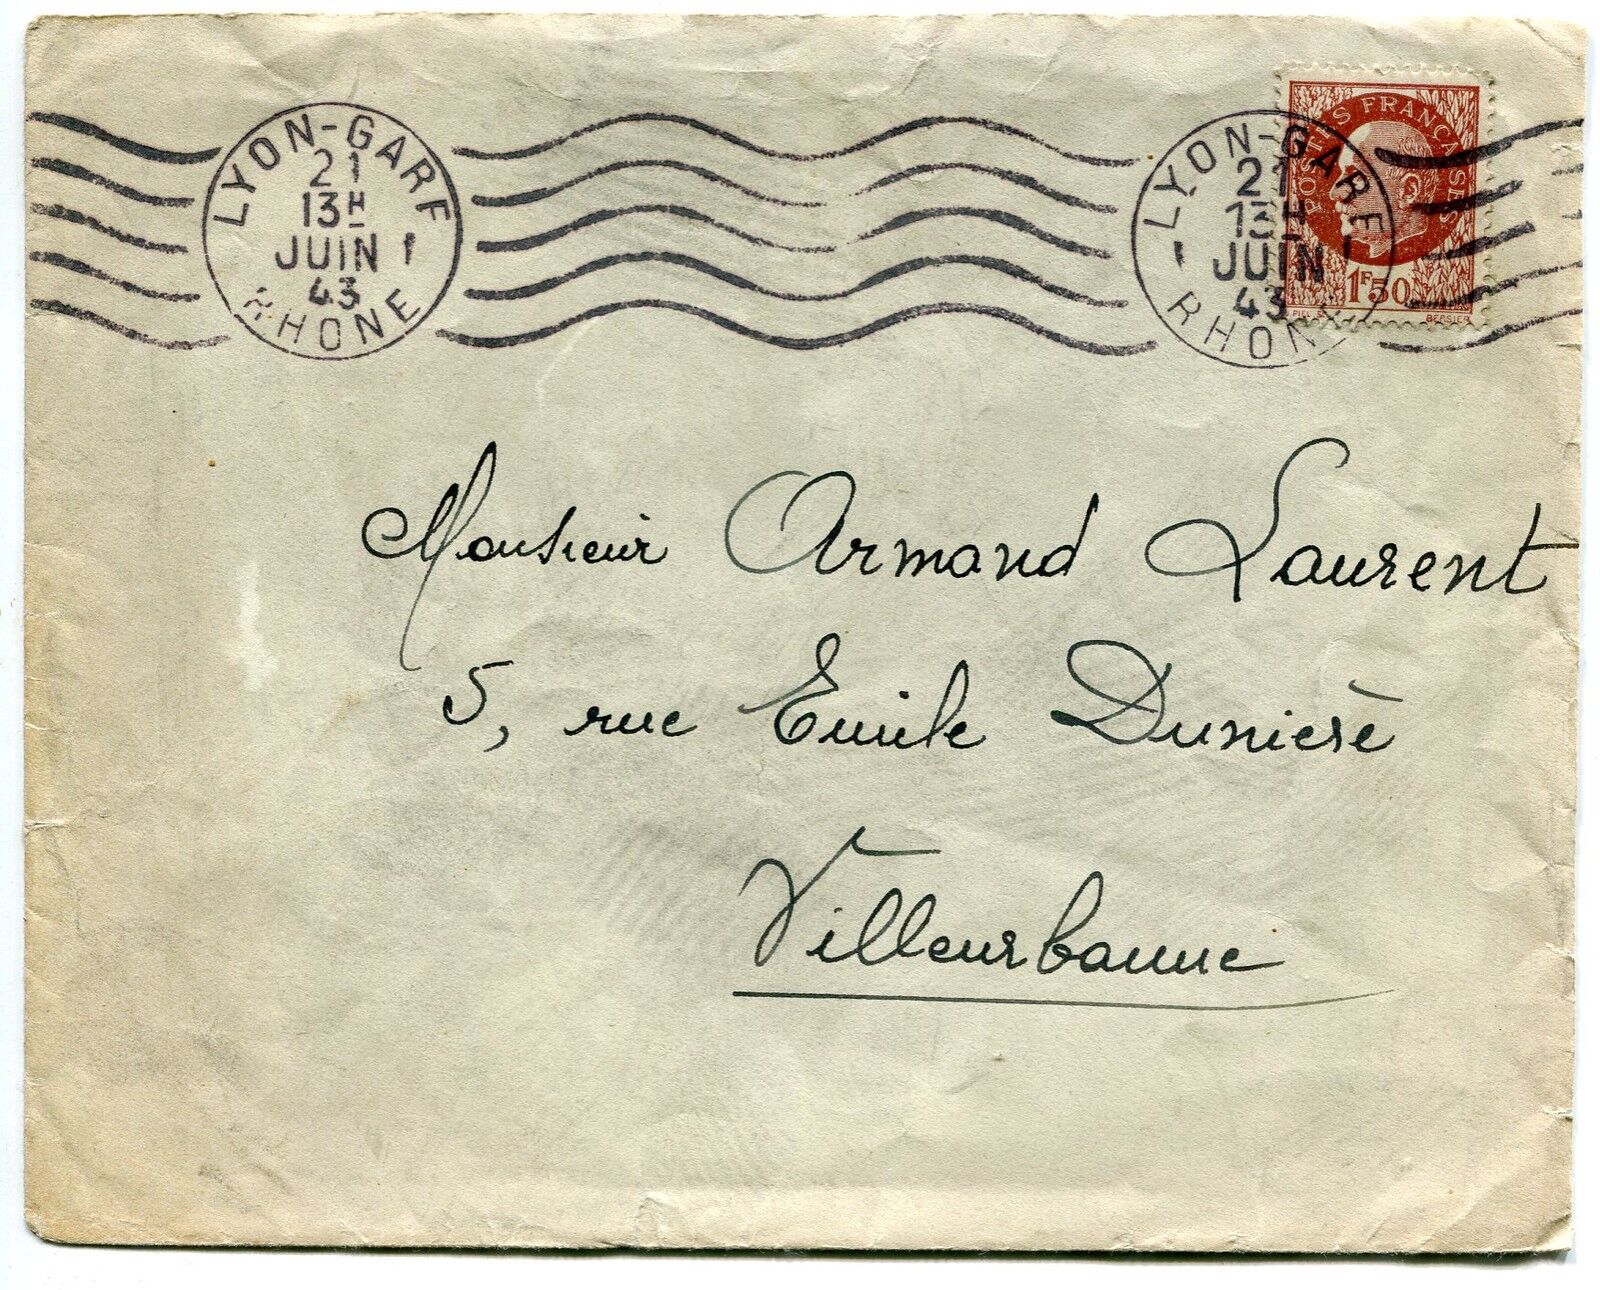 LYON-GARE
21
13H
JUIN
43
RHONE
LYON-GARE
21
13H
JUIN
43
RHONE
POSTES FRANÇAISES
1F50
PIEL SC. BERSIER
Monsieur Armand Laurent
5, rue Emile Dunierè
Villeurbanne